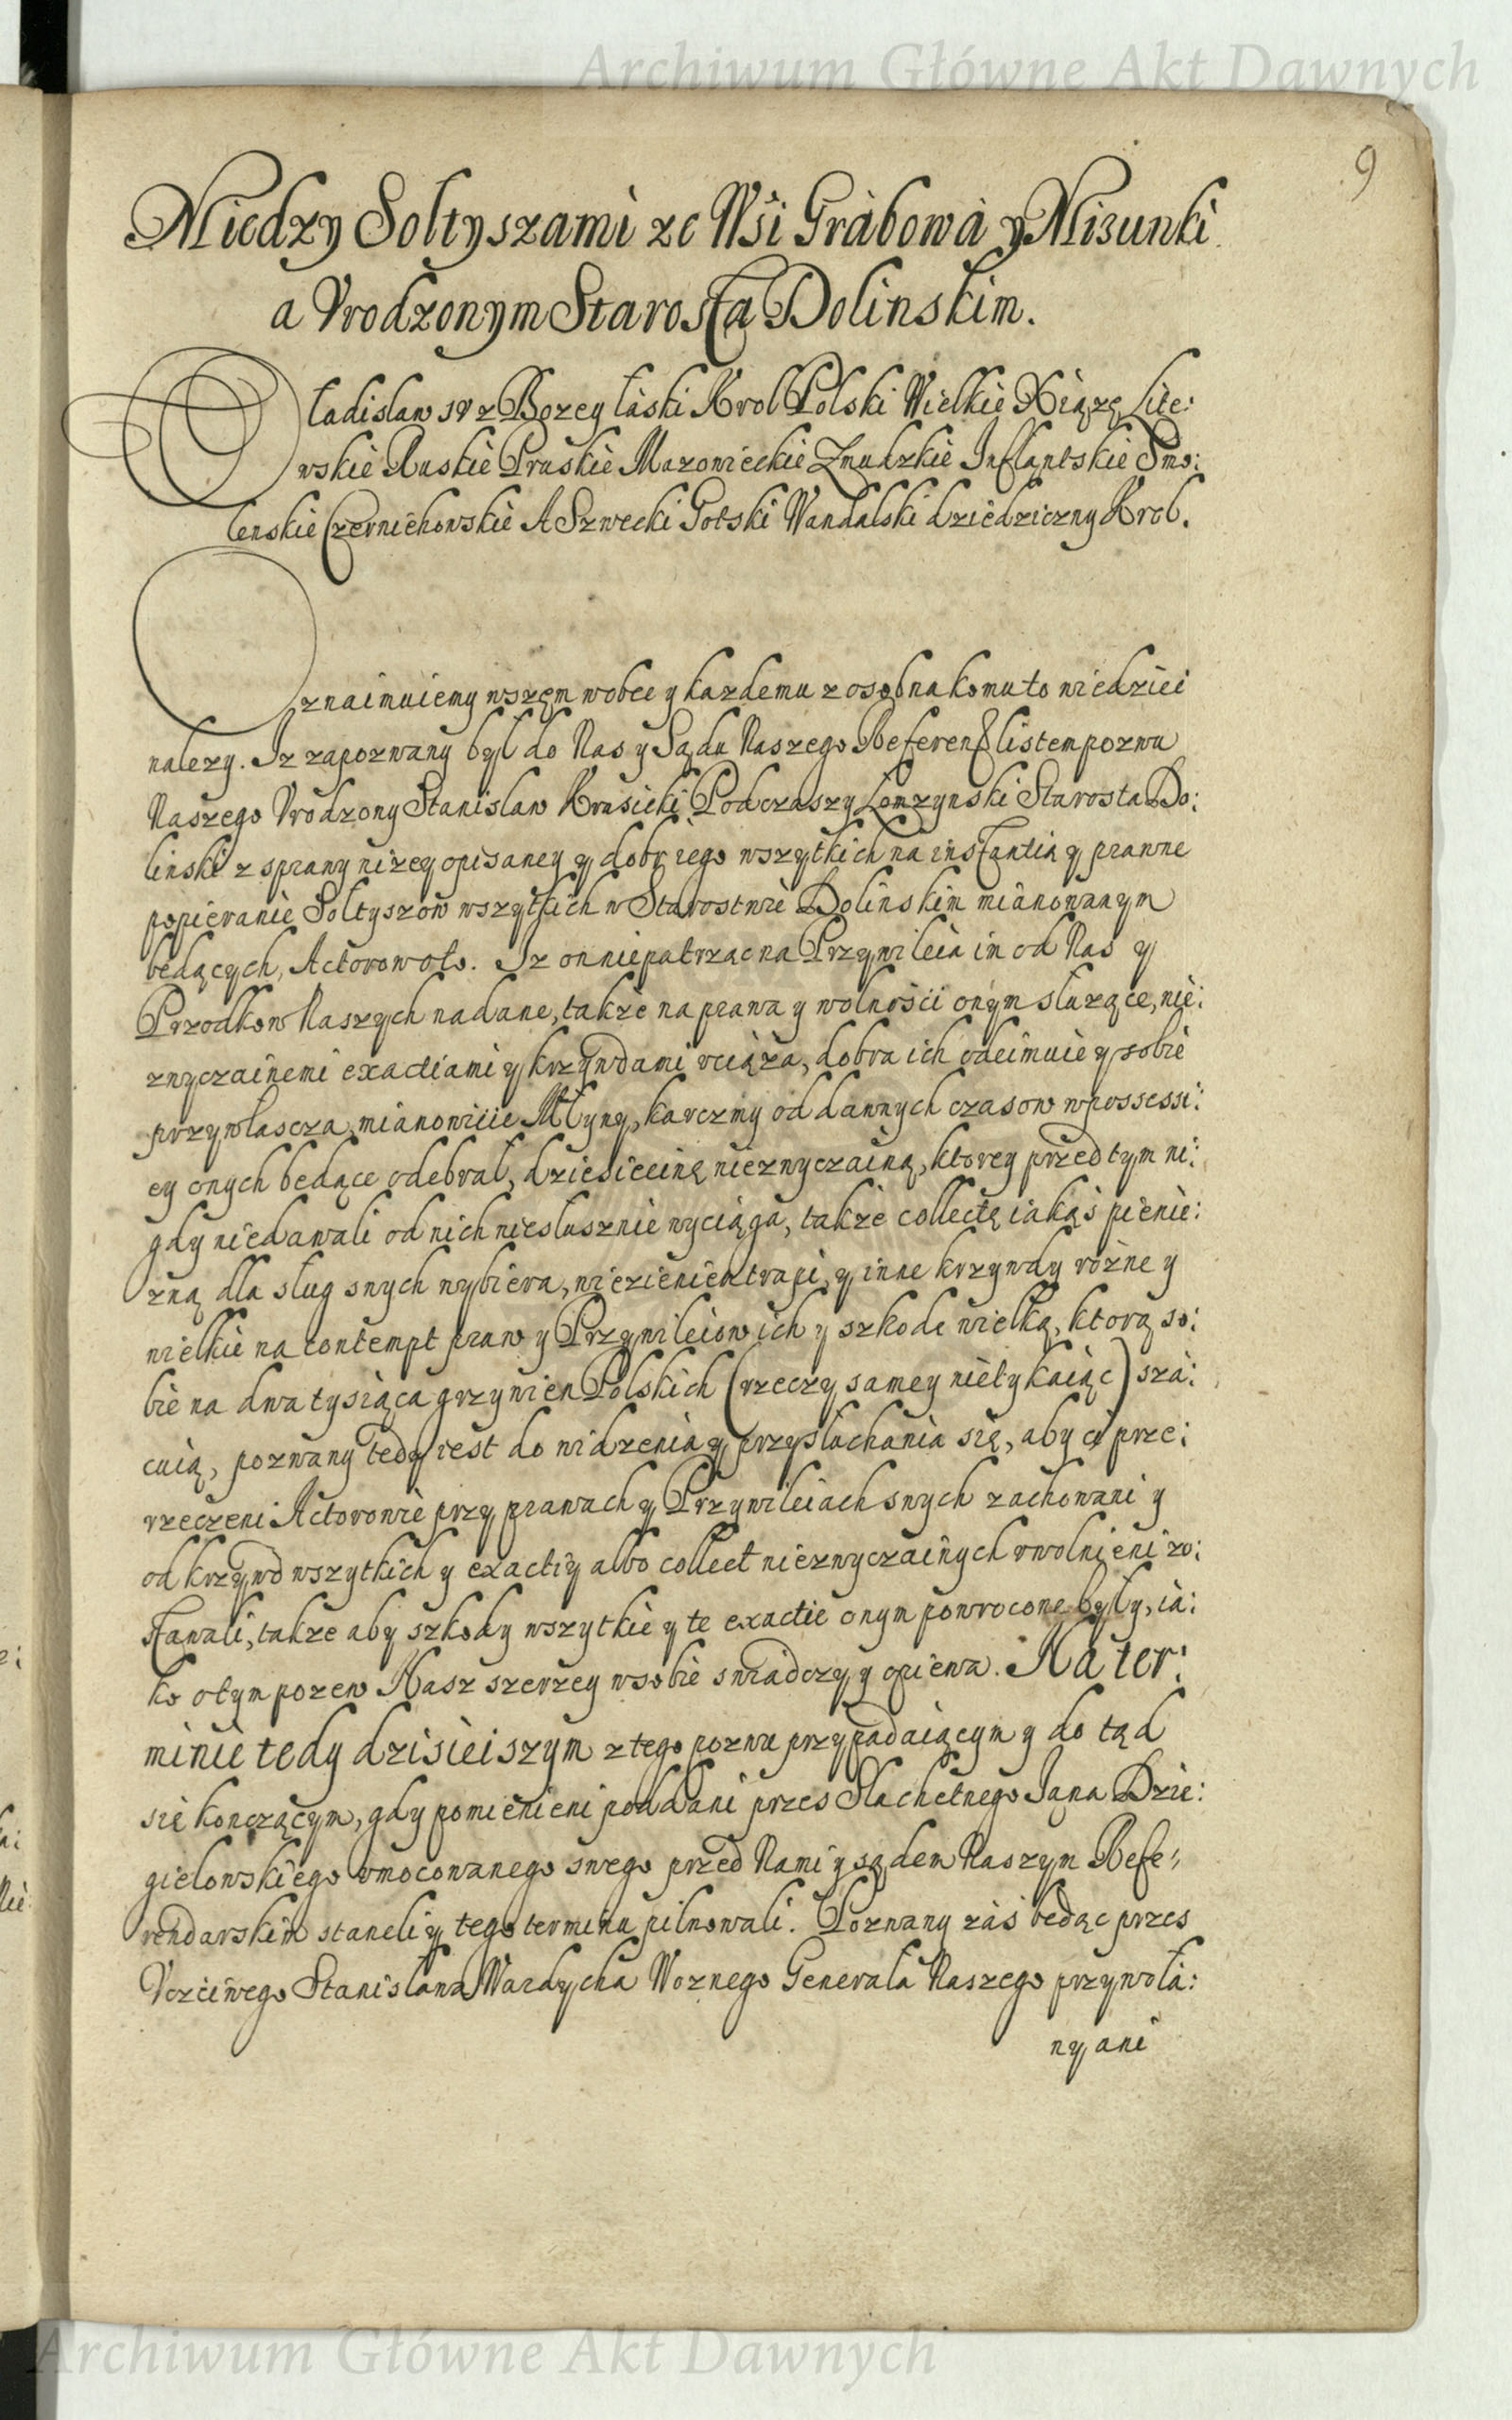 Archiwum Główne Akt Dawnych
9
Miedzy Soltyszami ze Wsi Grabowa y Misunki
a Vrodzonym Starostą Dolinskim.
Wladislaw IV z Bozey laski Krol Polski Wielkie Xiązę Lite:
wskie Ruskie Pruskie Mazowieckie Zmudzkie Inflantskie Smo:
lenskie Czerniehowskie A Szwecki Gotski Wandalski dziedziczny Krol.
Oznaimuiemy wszem wobec y kazdemu z osobna komu to wiedziec
nalezy. Iz zapozwany był do Nas y Sądu Naszego Referen: listem pozwu
Naszego Vrodzony Stanislaw Krusicki Podczaszy Lomzynski Starosta Do:
linski z sprawy nizey opisaney y dobr iego wszytkich na instantią y prawne
popieranie Soltyszow wszytkich w Starostwie Dolinskim mianowanym
bedących, Actorow oto. Iz on nie patrzac na Przywileia im od Nas y
Przodkow Naszych nadane, takze na prawa y wolnosci onym sluzące, nie:
zwyczainemi exactiami y krzywdami vciąza, dobra ich odeimuie y sobie
przywlascza, mianowicie Mlyny, karczmy od dawnych czasow w possessi:
ey onych bedące odebral, dziesiecinę niezwyczainą, ktorey przed tym ni:
gdy niedawali od nich nieslusznie wyciąga, takze collectę iakąs pienie:
zną dla slug swych wybiera, wiezieniem trapi, y inne krzywdy rozne y
wielkie na contempt praw y Przywileiow ich y szkode wielką, ktorą so:
bie na dwa tysiąca grzywien Polskich (rzeczy samey nietykaiąc) sza:
cuią, pozwany tedy iest do widzenia y przysluchania się, aby ci prze:
rzeczeni Actorowie przy prawach y Przywileiach swych zachowani y
od krzywd wszytkich y exactiy albo collect niezwyczainych vwolnieni zo:
stawali, takze aby szkody wszytkie y te exactie onym powrocone były, ia:
ko o tym pozew Nasz szerzey w sobie swiadczy y opiewa. Na ter:
minie tedy dzisieiszym z tego pozwu przypadaiącym y do tąd
sie konczącym, gdy pomienieni poddani przes Slachetnego Jana Dzie:
gielowskiego vmocowanego swego przed Nami y sądem Naszym Refe:
rendarskim staneli y tego terminu pilnowali. Pozwany zas bedąc przes
Vczciwego Stanislawa Wardycha Woznego Generala Naszego przywola:
ny ani
Archiwum Główne Akt Dawnych